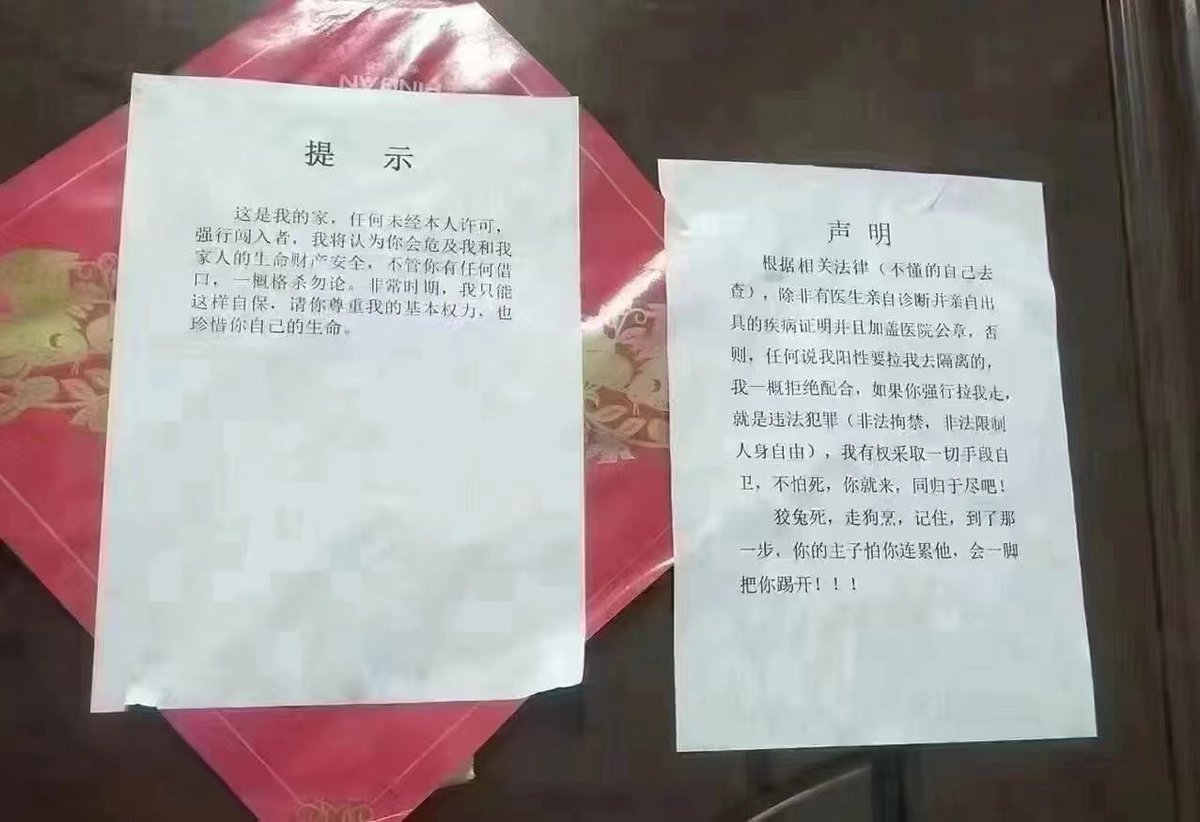 提 示
这是我的家，任何未经本人许可，
强行闯入者，我将认为你会危及我和我
家人的生命财产安全，不管你有任何借
口，一概格杀勿论。非常时期，我只能
这样自保，请你尊重我的基本权力，也
珍惜你自己的生命。
声 明
根据相关法律（不懂的自己去
查），除非有医生亲自诊断并亲自出
具的疾病证明并且加盖医院公章，否
则，任何说我阳性要拉我去隔离的，
我一概拒绝配合，如果你强行拉我走，
就是违法犯罪（非法拘禁，非法限制
人身自由），我有权采取一切手段自
卫，不怕死，你就来，同归于尽吧！
狡兔死，走狗烹，记住，到了那
一步，你的主子怕你连累他，会一脚
把你踢开！！！